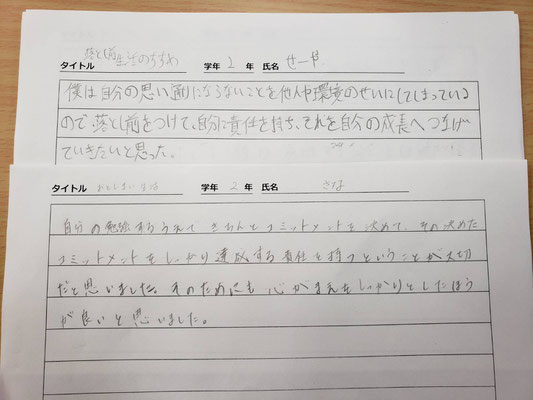 タイトル 落とし前生活のすすめ 学年 2 年 氏名 せーや
僕は自分の思い通りにならないことを他人や環境のせいにしてしまっている
ので、落とし前をつけて、自分に責任を持ち、それを自分の成長へつなげ
ていきたいと思った。
タイトル おとしまい生活 学年 2 年 氏名 さな
自分の勉強するうえで きちんとコミットメントを決めて、その決めた
コミットメントをしっかり達成する責任を持つということが大切
だと思いました。そのためにも心がまえをしっかりとしたほう
が良いと思いました。